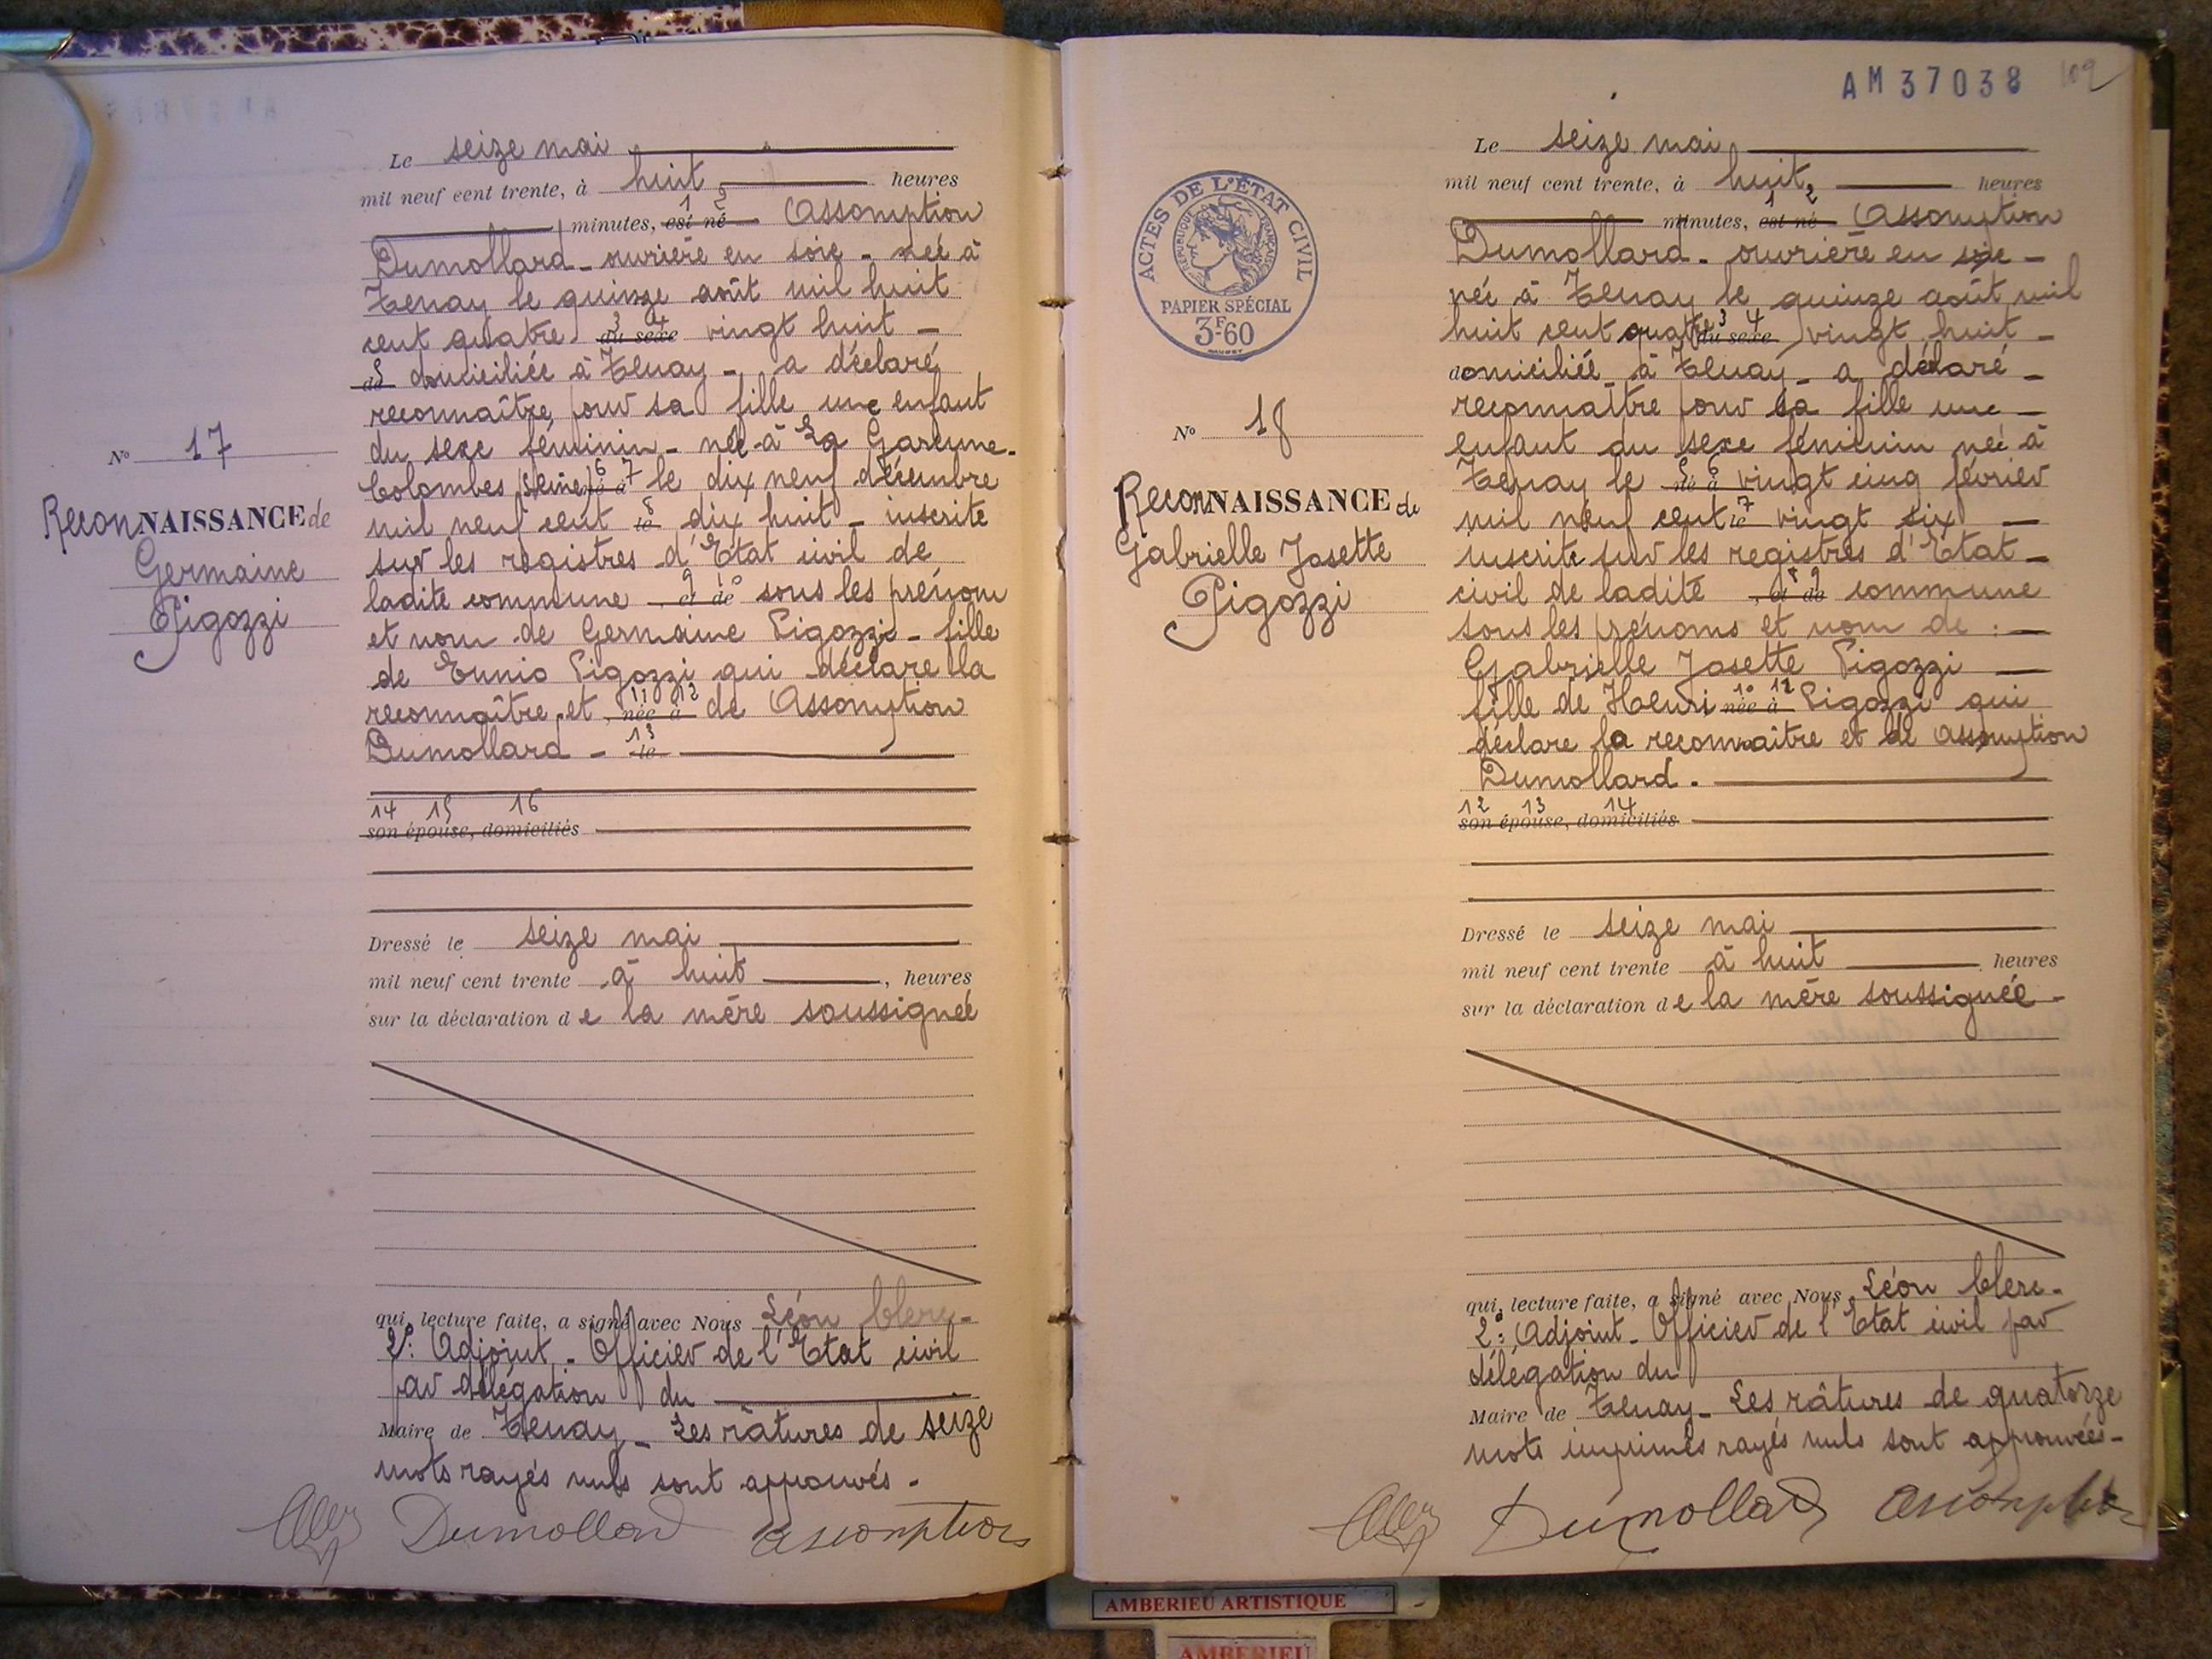 Le seize mai
mil neuf cent trente, à huit heures
minutes, est né Assomption
Dumollard - ouvrière en soie - née à
Tenay le quinze août mil huit
cent quatre du sexe vingt huit -
de domiciliée à Tenay - a déclaré
reconnaître pour sa fille une enfant
du sexe féminin - née à La Garenne-
Colombes (Seine) né à le dix neuf décembre
mil neuf cent le dix huit - inscrite
sur les registres d'Etat civil de
ladite commune , et de sous les prénom
et nom de Germaine Pigozzi - fille
de Ennio Pigozzi qui déclare la
reconnaître et , née à de Assomption
Dumollard - le
14 15 16
son épouse, domiciliés
Dressé le seize mai
mil neuf cent trente à huit , heures
sur la déclaration de la mère soussignée
qui, lecture faite, a signé avec Nous Léon Clerc -
2e: Adjoint - Officier de l'Etat civil
par délégation du
Maire de Tenay - Les râtures de seize
mots rayés nuls sont approuvés -
Dumollard assomption
N° 17
ReconNAISSANCE de
Germaine
Pigozzi
AM37038 109
Le seize mai
mil neuf cent trente, à huit heures
minutes, est né Assomption
Dumollard - ouvrière en soie -
née à Tenay le quinze août mil
huit cent quatre du sexe vingt huit -
domiciliée à Tenay - a déclaré -
reconnaître pour sa fille une -
enfant du sexe féminin née à
Tenay le né à vingt cinq février
mil neuf cent le vingt six -
inscrite sur les registres d'Etat -
civil de ladite , et de commune
sous les prénoms et nom de : -
Gabrielle Josette Pigozzi -
fille de Henri née à Pigozzi qui
déclare la reconnaître et de Assomption
Dumollard .
12 13 14
son épouse, domiciliés
Dressé le seize mai
mil neuf cent trente à huit heures
sur la déclaration de la mère soussignée -
qui, lecture faite, a signé avec Nous Léon Clerc -
2d: Adjoint - Officier de l'Etat civil par
délégation du
Maire de Tenay - Les râtures de quatorze
mots imprimés rayés nuls sont approuvées -
Dumollard assomption
ACTES DE L'ÉTAT CIVIL
REPUBLIQUE FRANÇAISE
PAPIER SPÉCIAL
3F.60
N° 18
ReconNAISSANCE de
Gabrielle Josette
Pigozzi
AMBERIEU ARTISTIQUE
AMBERIEU